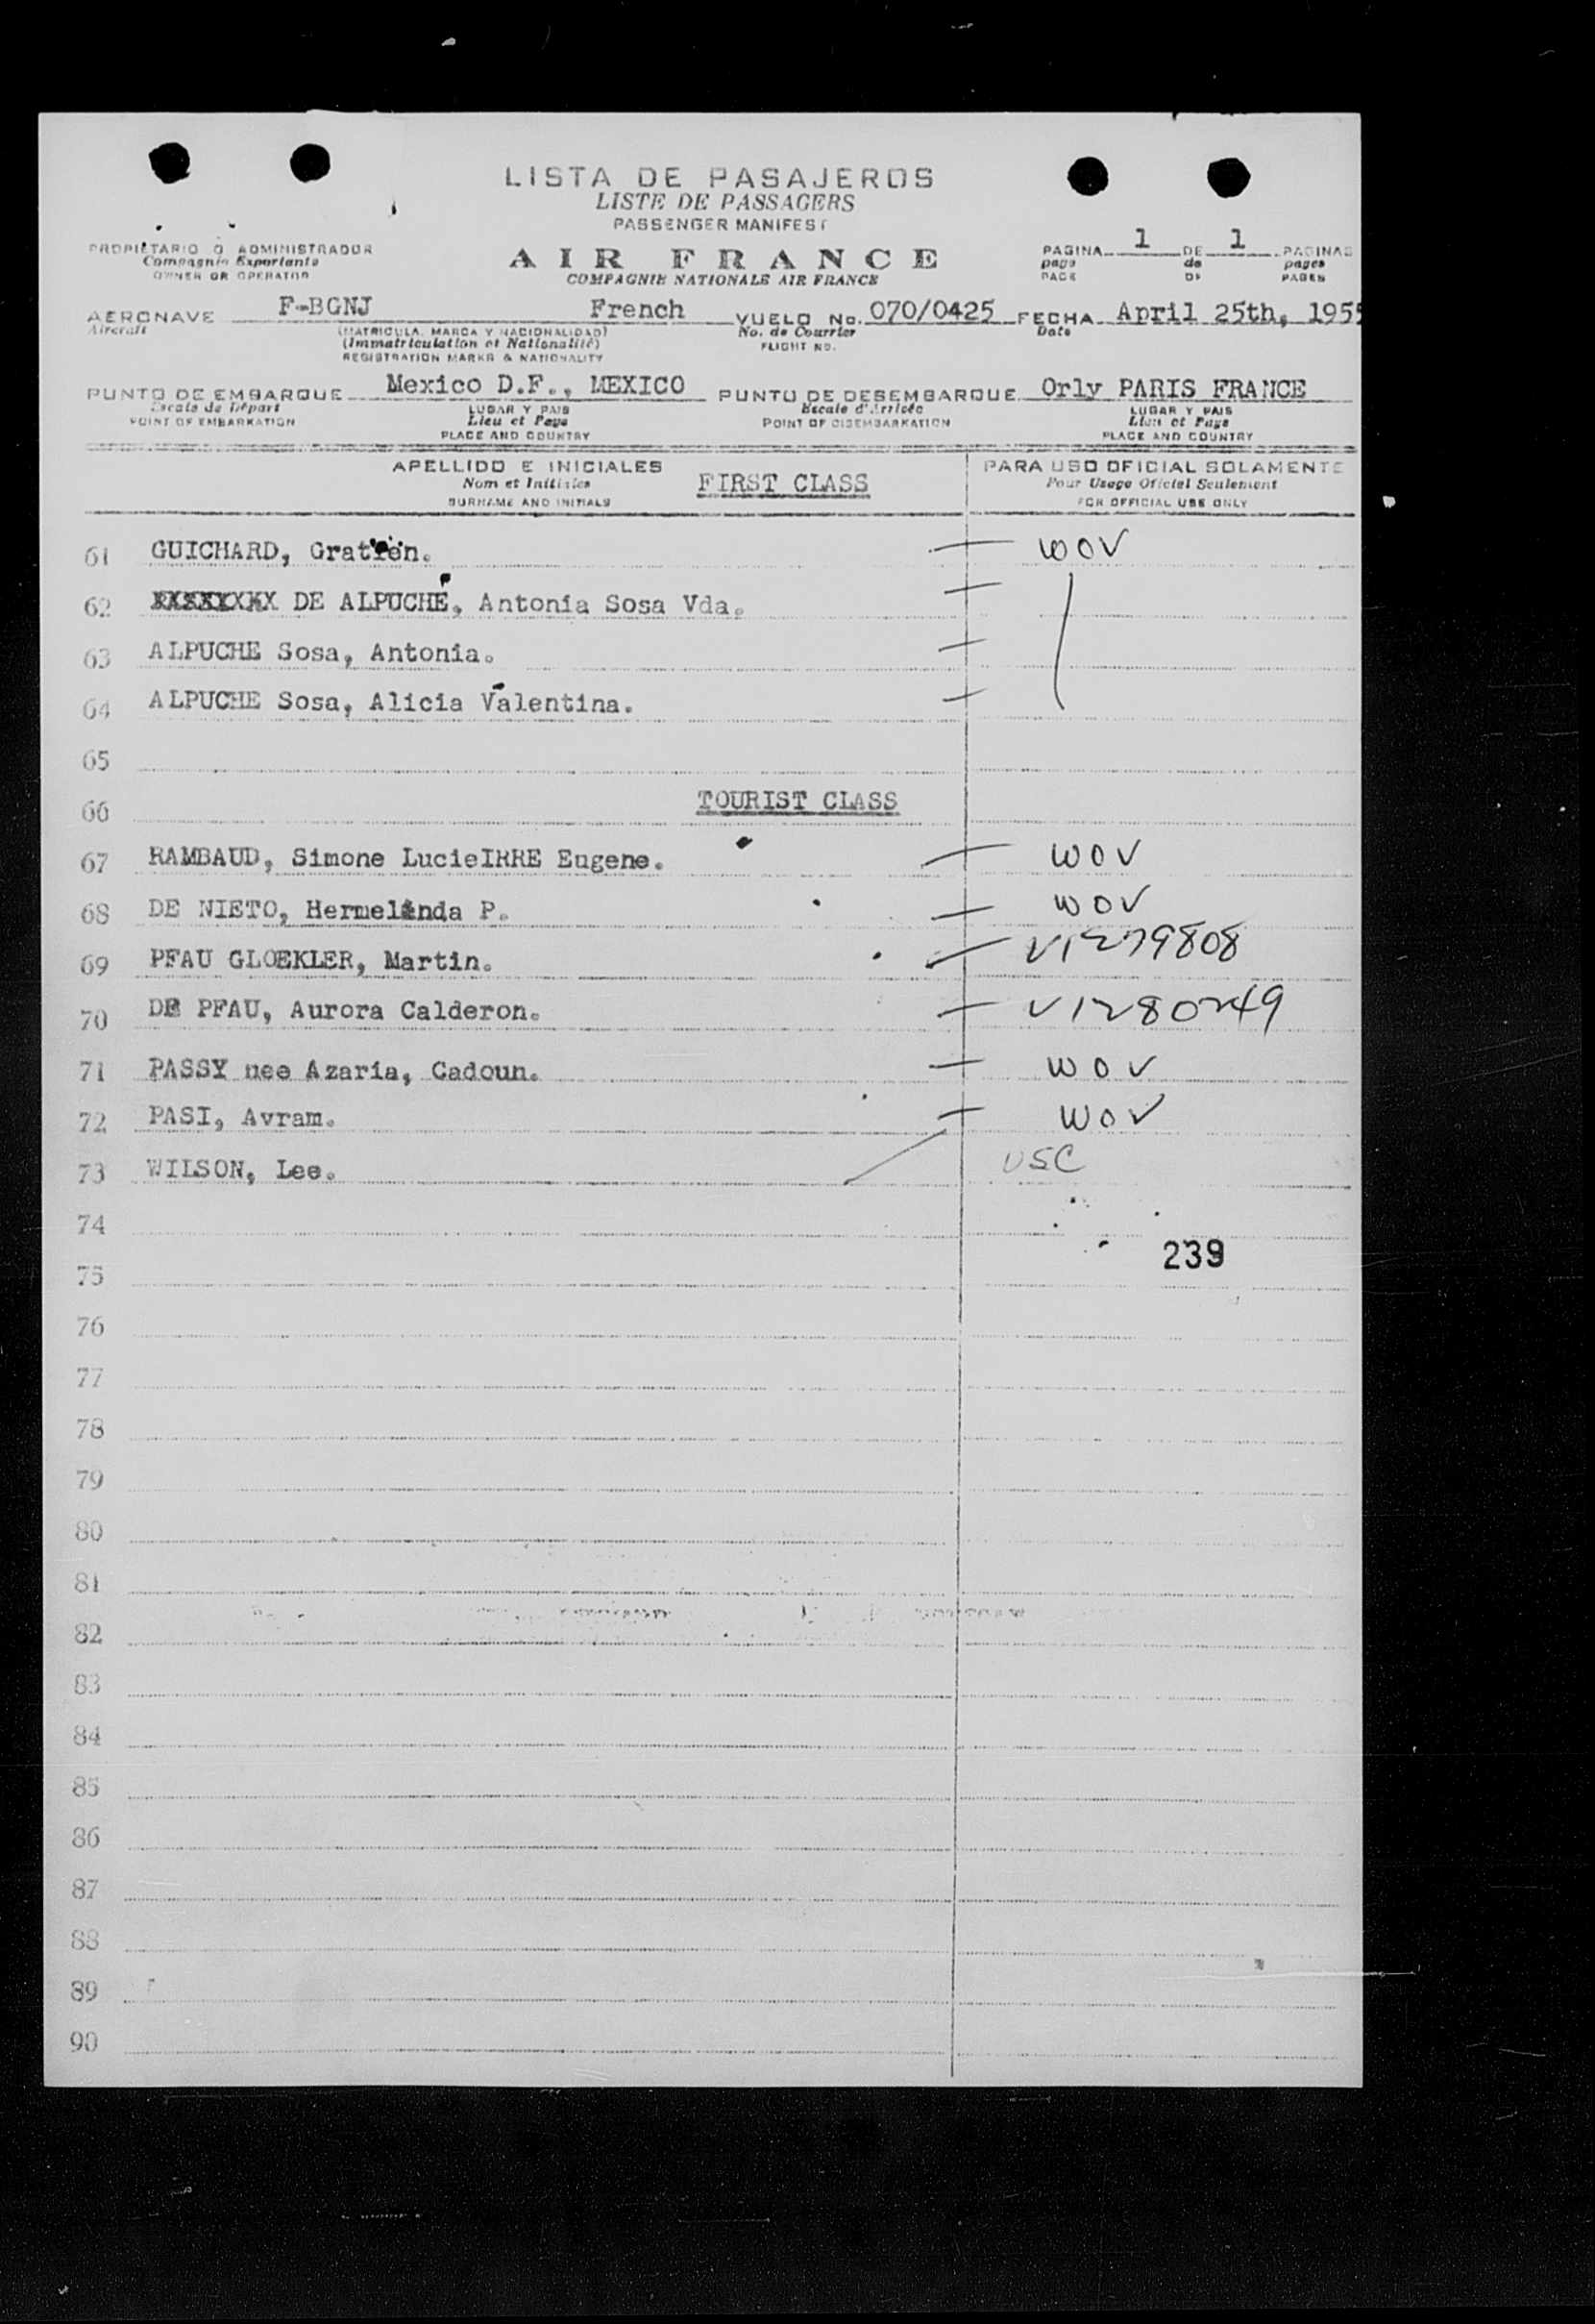 LISTA DE PASAJEROS
LISTE DE PASSAGERS
PASSENGER MANIFEST
PROPIETARIO O ADMINISTRADOR
Compagnie Exportante
OWNER OR OPERATOR
AIR FRANCE
COMPAGNIE NATIONALE AIR FRANCE
PAGINA 1 DE 1 PAGINAS
page de pages
PAGE OF PAGES
AERONAVE F-BGNJ French VUELO No. 070/0425 FECHA April 25th, 1955
Aircraft (MATRICULA, MARCA Y NACIONALIDAD) No. de Courrier Date
(Immatriculation et Nationalité) FLIGHT NO.
REGISTRATION MARKS & NATIONALITY
PUNTO DE EMBARQUE Mexico D.F., MEXICO PUNTO DE DESEMBARQUE Orly PARIS FRANCE
Escale de Départ LUGAR Y PAIS Escale d'Arrivée LUGAR Y PAIS
POINT OF EMBARKATION Lieu et Pays POINT OF DISEMBARKATION Lieu et Pays
PLACE AND COUNTRY PLACE AND COUNTRY
APELLIDO E INICIALES PARA USO OFICIAL SOLAMENTE
Nom et Initiales FIRST CLASS Pour Usage Oficiel Seulement
SURNAME AND INITIALS FOR OFFICIAL USE ONLY
61 GUICHARD, Gratien. WOV
62 XXXXXXXX DE ALPUCHE, Antonia Sosa Vda.
63 ALPUCHE Sosa, Antonia.
64 ALPUCHE Sosa, Alicia Valentina.
65
66 TOURIST CLASS
67 RAMBAUD, Simone LucieIRRE Eugene. WOV
68 DE NIETO, Hermelinda P. WOV
69 PFAU GLOEKLER, Martin. V1279808
70 DE PFAU, Aurora Calderon. V1280249
71 PASSY nee Azaria, Cadoun. WOV
72 PASI, Avram. WOV
73 WILSON, Lee. USC
74
239
75
76
77
78
79
80
81
82
83
84
85
86
87
88
89
90